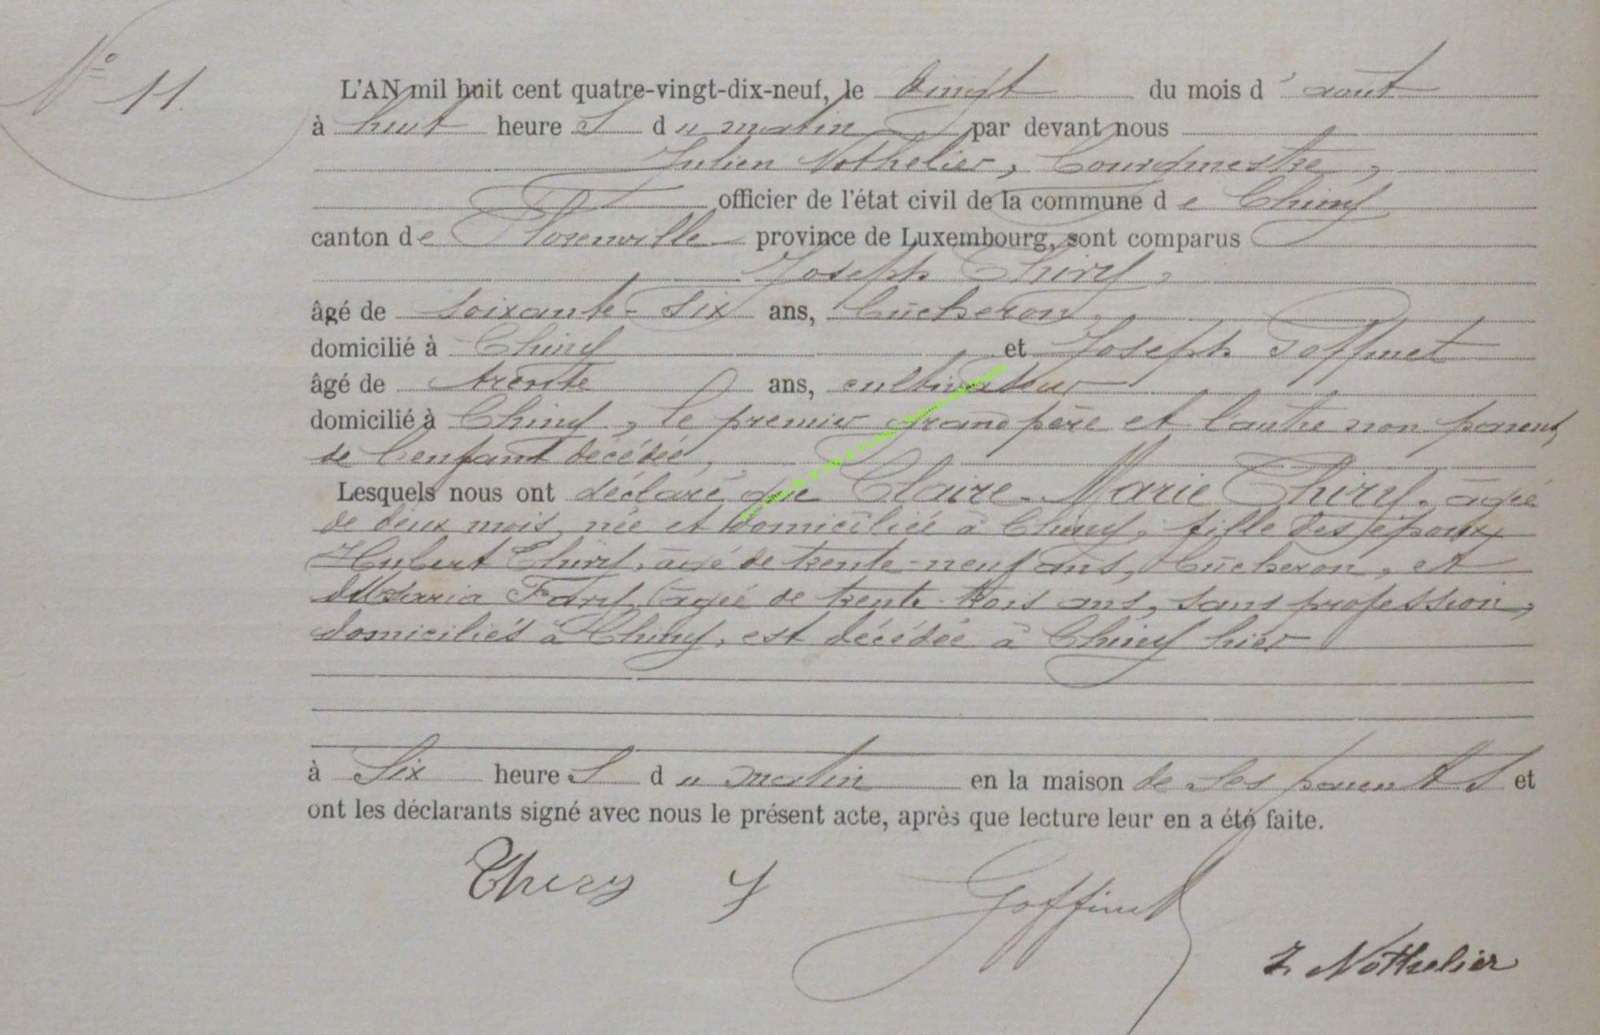 N° 11.
L'AN mil huit cent quatre-vingt-dix-neuf, le vingt du mois d'août
à huit heures du matin par devant nous
Julien Nothelier, Bourgmestre,
officier de l'état civil de la commune de Chiny
canton de Florenville province de Luxembourg, sont comparus
Joseph Thiry,
âgé de soixante-six ans, bûcheron,
domicilié à Chiny et Joseph Goffinet
âgé de trente ans, cultivateur
domicilié à Chiny, le premier grand père et l'autre non parent,
de l'enfant décédée,
Lesquels nous ont déclaré que Claire-Marie Thiry, âgée
de deux mois, née et domiciliée à Chiny, fille des époux
Hubert Thiry, âgé de trente-neuf ans, bûcheron, et
Maria Fary, âgée de trente-trois ans, sans profession,
domiciliés à Chiny, est décédée à Chiny hier
à six heures du matin en la maison de ses parents et
ont les déclarants signé avec nous le présent acte, après que lecture leur en a été faite.
Thiry J Goffinet
J. Nothelier